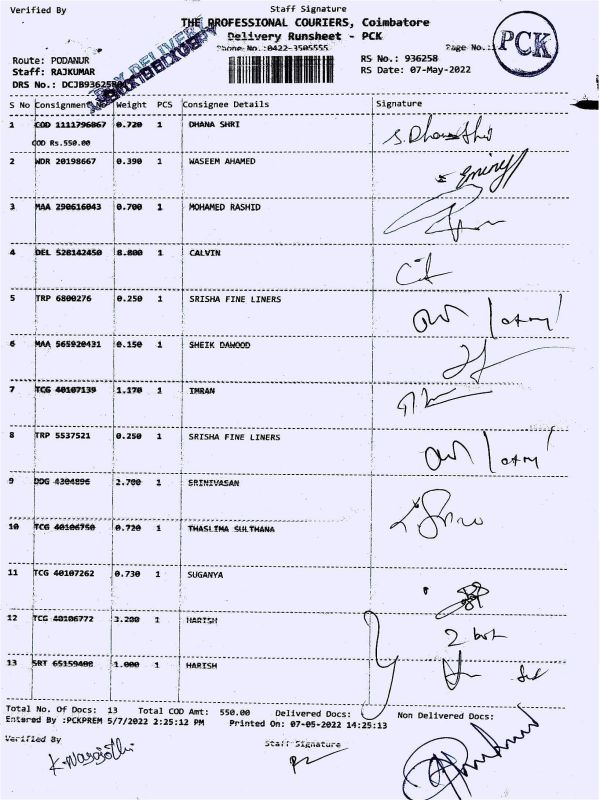 Verified By Staff Signature
THE PROFESSIONAL COURIERS, Coimbatore
Delivery Runsheet - PCK
Phone No.:0422-3505555 Page No.:1
PCK
Route: PODANUR RS No.: 936258
Staff: RAJKUMAR RS Date: 07-May-2022
DRS No.: DCJB936258
S No Consignment No Weight PCS Consignee Details Signature
1 COD 1111796067 0.720 1 DHANA SHRI
COD Rs.550.00
2 WDR 20198667 0.390 1 WASEEM AHAMED
3 MAA 290616043 0.700 1 MOHAMED RASHID
4 DEL 528142450 8.800 1 CALVIN
5 TRP 6800276 0.250 1 SRISHA FINE LINERS
6 MAA 565920431 0.150 1 SHEIK DAWOOD
7 TCG 40107139 1.170 1 IMRAN
8 TRP 5537521 0.250 1 SRISHA FINE LINERS
9 DDG 4304896 2.700 1 SRINIVASAN
10 TCG 40106750 0.720 1 THASLIMA SULTHANA
11 TCG 40107262 0.730 1 SUGANYA
12 TCG 40106772 3.200 1 HARISH
13 SRT 65159408 1.000 1 HARISH
Total No. Of Docs: 13 Total COD Amt: 550.00 Delivered Docs: Non Delivered Docs:
Entered By :PCKPREM 5/7/2022 2:25:12 PM Printed On: 07-05-2022 14:25:13
Verified By Staff Signature